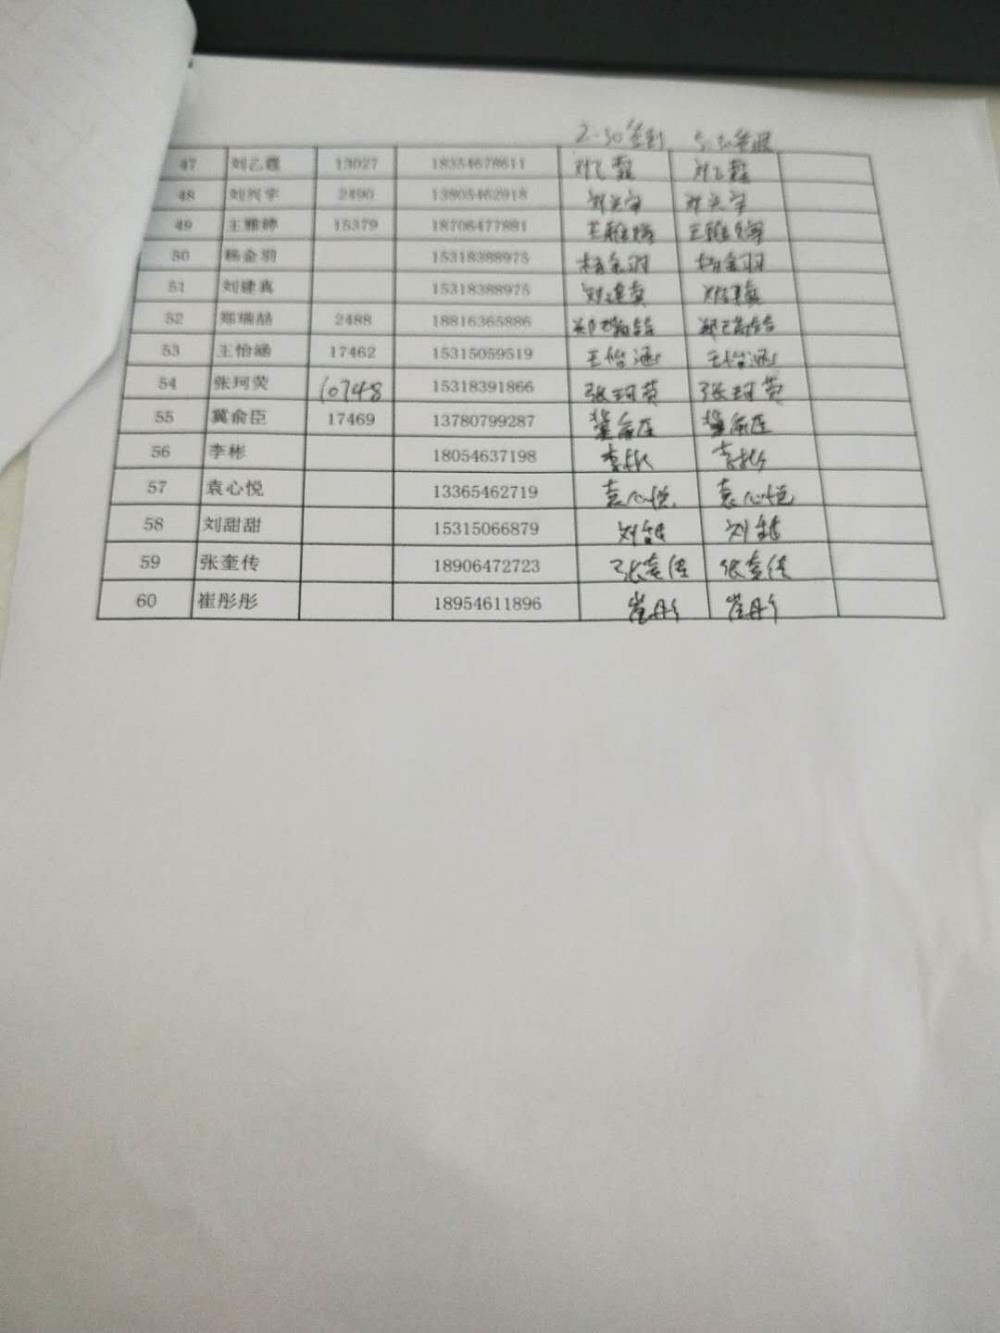 2-30签到 5:30签退
47 刘乙霆 13027 18354678611 刘乙霆 刘乙霆
48 刘兴宇 2490 13805462918 刘兴宇 刘兴宇
49 王雅婷 15379 18706477881 王雅婷 王雅婷
50 杨金羽 15318388975 杨金羽 杨金羽
51 刘建真 15318388975 刘建真 刘建真
52 郑瑞喆 2488 18816365886 郑瑞喆 郑瑞喆
53 王怡涵 17462 15315059519 王怡涵 王怡涵
54 张珂荧 10748 15318391866 张珂荧 张珂荧
55 冀俞臣 17469 13780799287 冀俞臣 冀俞臣
56 李彬 18054637198 李彬 李彬
57 袁心悦 13365462719 袁心悦 袁心悦
58 刘甜甜 15315066879 刘甜甜 刘甜甜
59 张奎传 18906472723 张奎传 张奎传
60 崔彤彤 18954611896 崔彤彤 崔彤彤